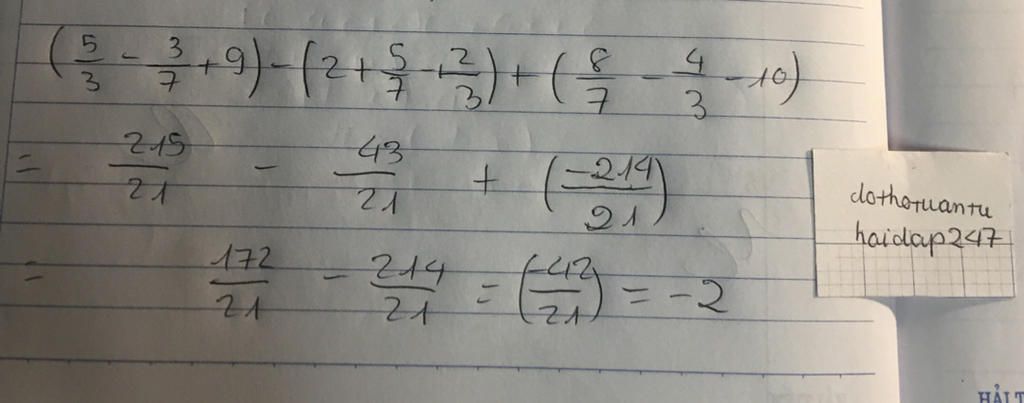 (5/3 - 3/7 + 9) - (2 + 5/7 - 2/3) + (8/7 - 4/3 - 10)
= 215/21 - 43/21 + (-214/21)
= 172/21 - 214/21 = (-42/21) = -2
dothotuantu
hoidap247
HẢI T